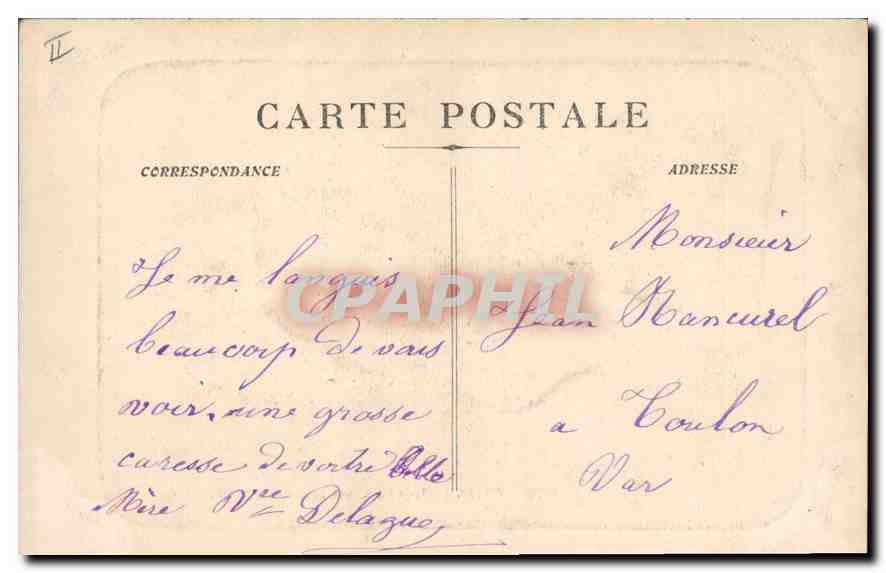 II
CARTE POSTALE
CORRESPONDANCE
ADRESSE
Je me languis
beaucoup de vous
voir, une grosse
caresse de votre Belle
Mère Vve Delague
Monsieur
Jean Rancurel
a Toulon
Var
CPAPHIL